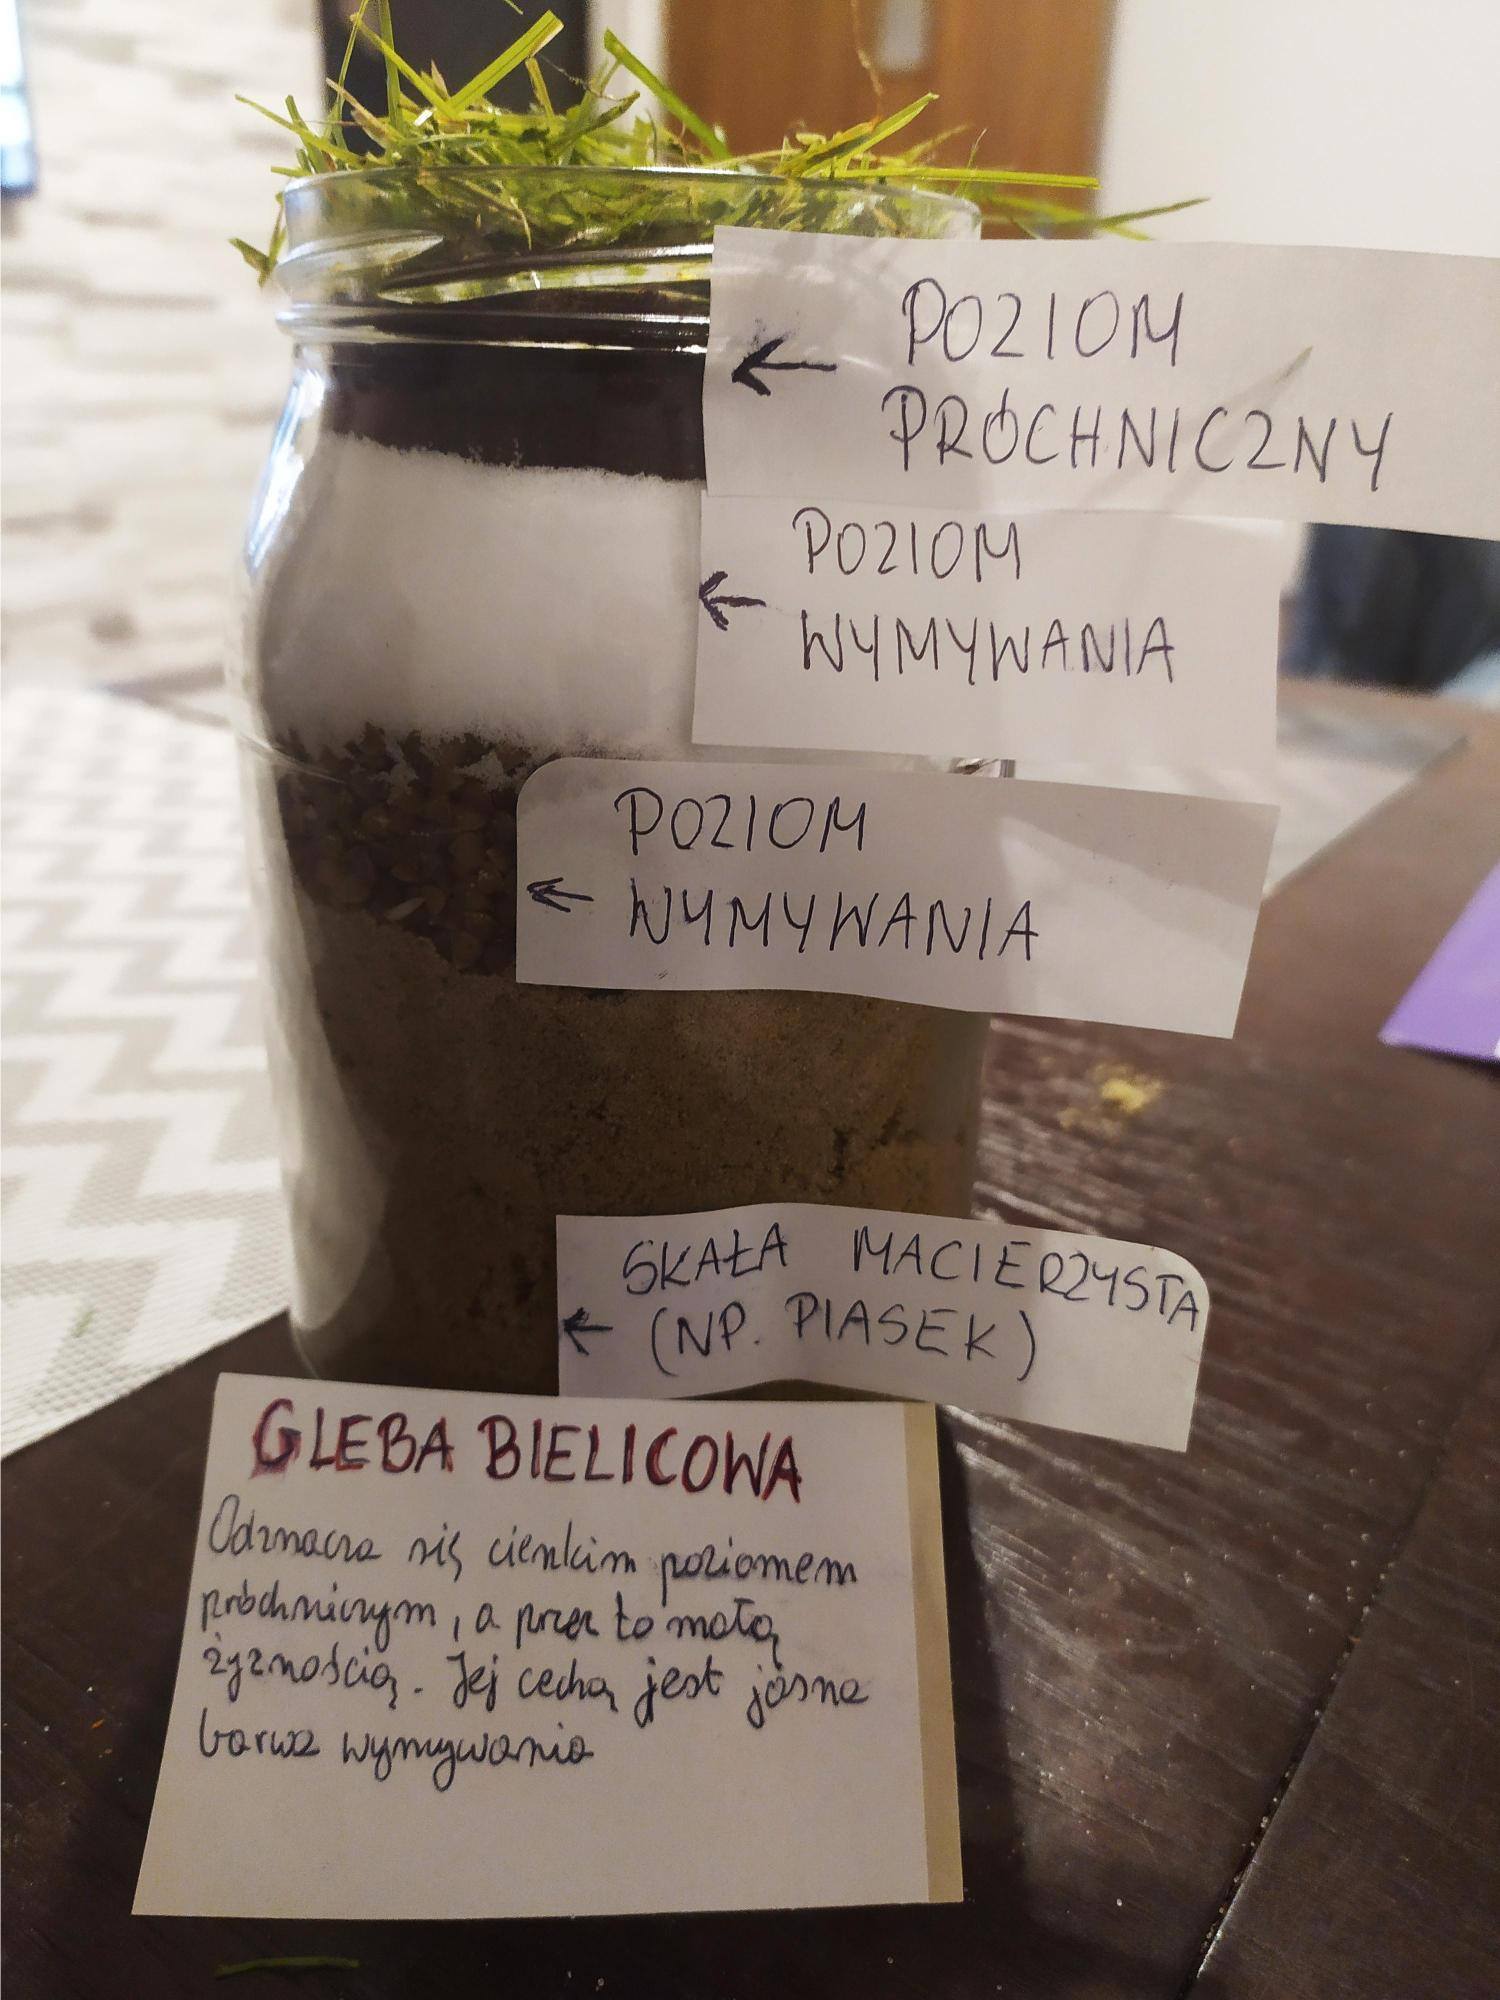 POZIOM
PRÓCHNICZNY
POZIOM
WYMYWANIA
POZIOM
WYMYWANIA
SKAŁA MACIERZYSTA
(NP. PIASEK)
GLEBA BIELICOWA
Odznacza się cienkim poziomem
próchniczym, a przez to małą
żyznością. Jej cechą jest jasna
barwa wymywania